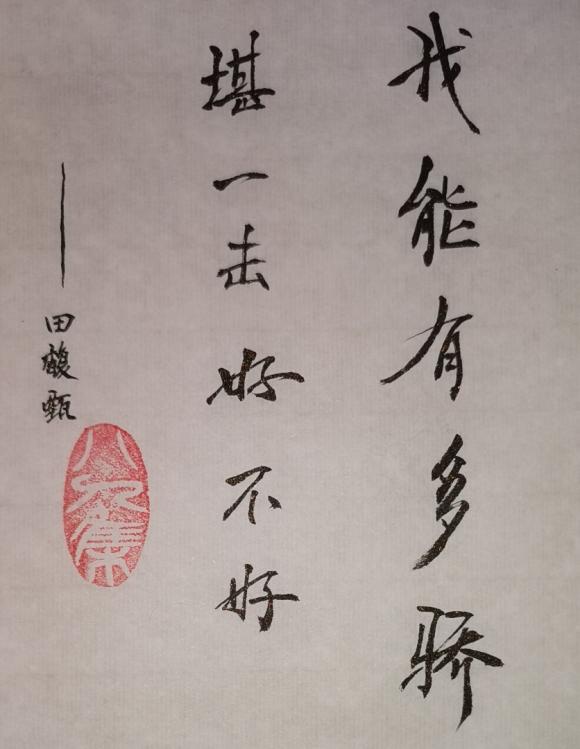 我能有多骄
堪一击好不好
——田馥甄